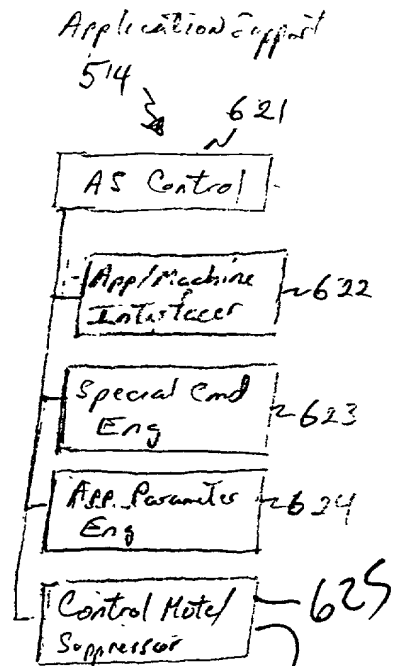 Application Support
514
621
AS Control
App/Machine
Interfacer
622
Special Cmd
Eng
623
App. Parameter
Eng
624
Control Mote/
Suppressor
625